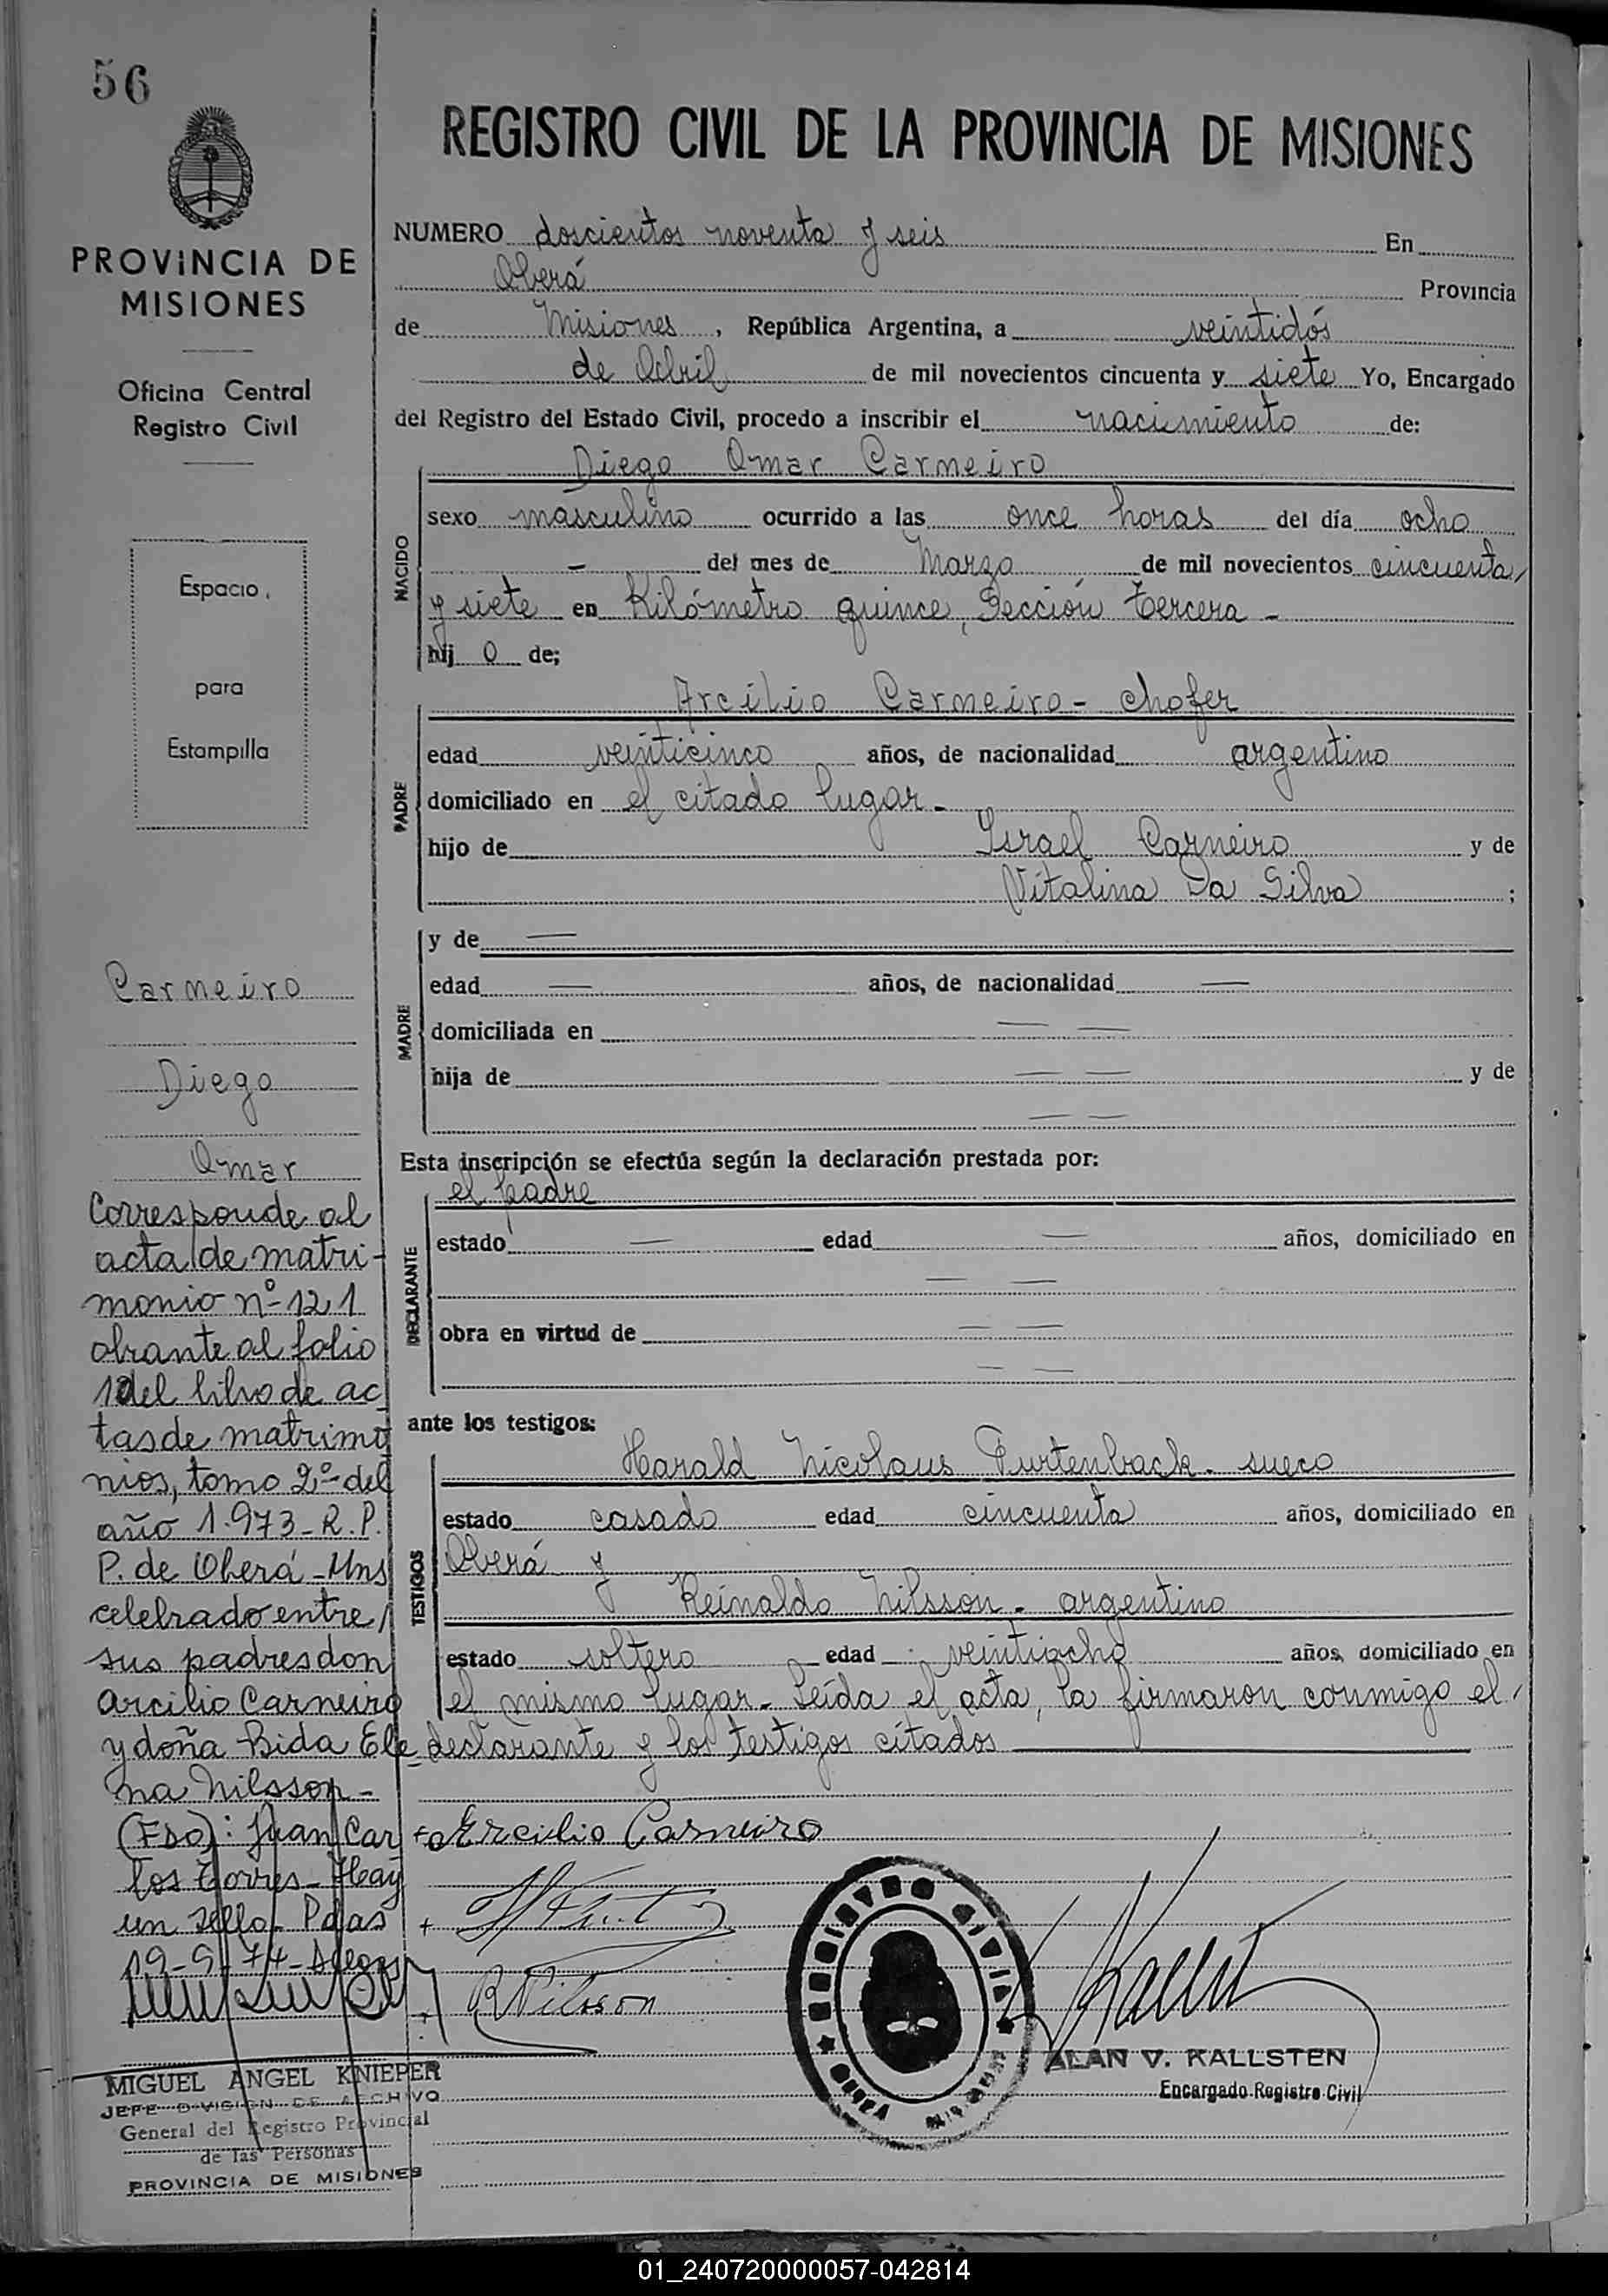 56
PROVINCIA DE
MISIONES
Oficina Central
Registro Civil
Espacio
para
Estampilla
Carneiro
Diego
Omar
Corresponde al
acta de matri-
monio nº 121
obrante al folio
del libro de ac
tas de matrimo
nios, tomo 2º del
año 1.973 - R. P.
P. de Oberá - Mns
celebrado entre
sus padres don
Arcilio Carneiro
y doña Bida Ele
na Nilsson -
(Fdo): Juan Car
los Torres - Hay
un sello - Pdas
19-9-74 -
MIGUEL ANGEL KNIEPER
JEFE DIVISION DE ARCHIVO
General del Registro Provincial
de las Personas
PROVINCIA DE MISIONES
REGISTRO CIVIL DE LA PROVINCIA DE MISIONES
NUMERO doscientos noventa y seis En
Oberá Provincia
de Misiones, República Argentina, a veintidós
de Abril de mil novecientos cincuenta y siete Yo, Encargado
del Registro del Estado Civil, procedo a inscribir el nacimiento de:
Diego Omar Carneiro
NACIDO
sexo masculino ocurrido a las once horas del día ocho
- del mes de Marzo de mil novecientos cincuenta
y siete en Kilómetro quince, Sección tercera -
hij o de;
Arcilio Carneiro - chofer
PADRE
edad veinticinco años, de nacionalidad argentino
domiciliado en el citado lugar -
hijo de Israel Carneiro y de
Vitalina Da Silva ;
MADRE
y de —
edad — años, de nacionalidad —
domiciliada en — —
hija de — — y de
— —
Esta inscripción se efectúa según la declaración prestada por:
el padre
DECLARANTE
estado — edad — años, domiciliado en
— —
obra en virtud de — —
— —
ante los testigos:
Harald Nicolaus Furtenback - sueco
TESTIGOS
estado casado edad cincuenta años, domiciliado en
Oberá y
Reinaldo Nilsson - argentino
estado soltero edad veintiocho años, domiciliado en
el mismo lugar - Leída el acta, la firmaron conmigo el
declarante y los testigos citados
Arcilio Carneiro
R Nilsson
REGISTRO CIVIL
OBERA
ALAN V. KALLSTEN
Encargado Registro Civil
01_240720000057-042814